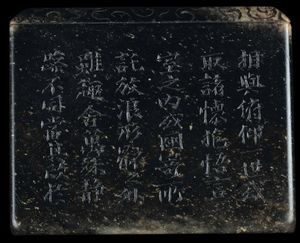 相與俯仰一世或
取諸懷抱悟言一
室之內或因寄所
託放浪形骸之外
雖趣舍萬殊靜
躁不同當其欣於